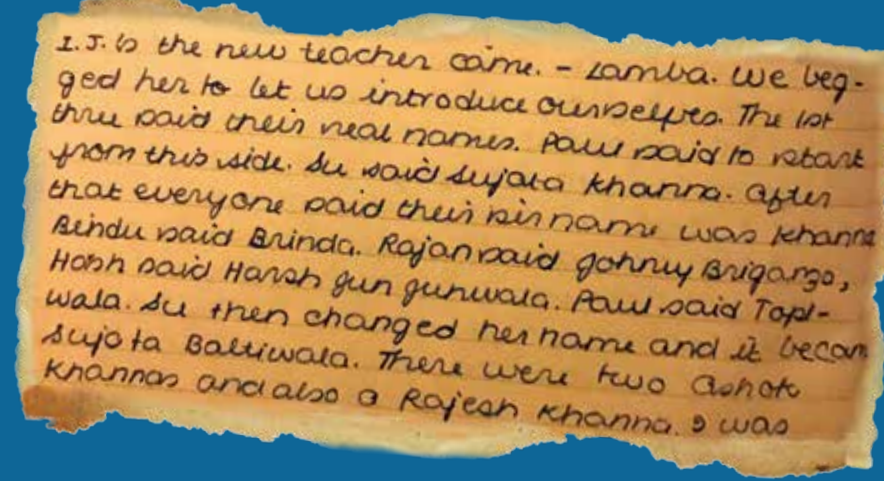 I.J. is the new teacher came. - Lamba. We beg-
ged her to let us introduce ourselves. The 1st
three said their real names. Paul said to start
from this side. Su said Sujata Khanna. After
that everyone said their sirname was Khanna
Bindu said Brinda. Rajan said Johnny Briganzo,
Harsh said Harsh gun gunwala. Paul said Topi-
wala. Su then changed her name and it becam
Sujata Baltiwala. There were two Ashok
Khannas and also a Rajesh Khanna. I was